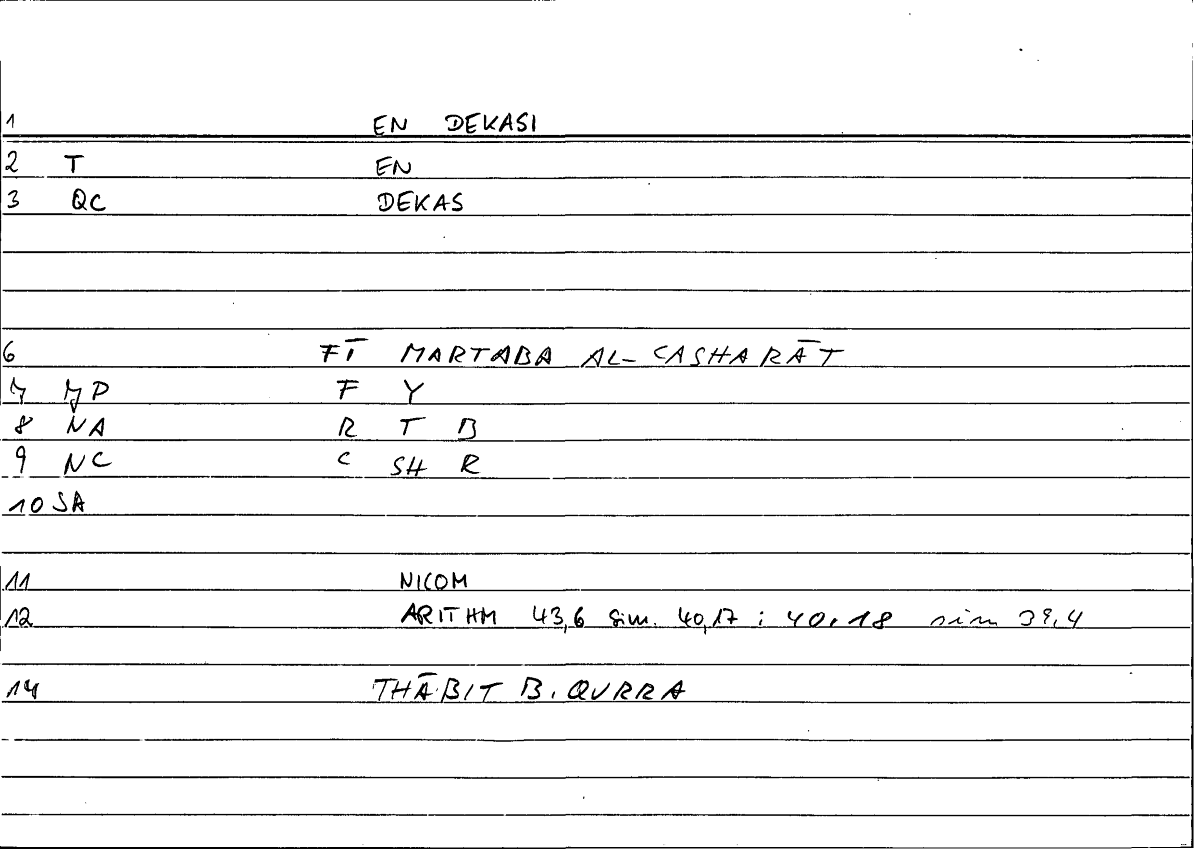 1 EN DEKASI
2 T EN
3 QC DEKAS
6 FĪ MARTABA AL-CASHARĀT
7 7P F Y
8 NA R T B
9 NC C SH R
10 SA
11 NICOM
12 ARITHM 43,6 sim. 40,17 ; 40,18 sim 39,4
14 THĀBIT B. QURRA